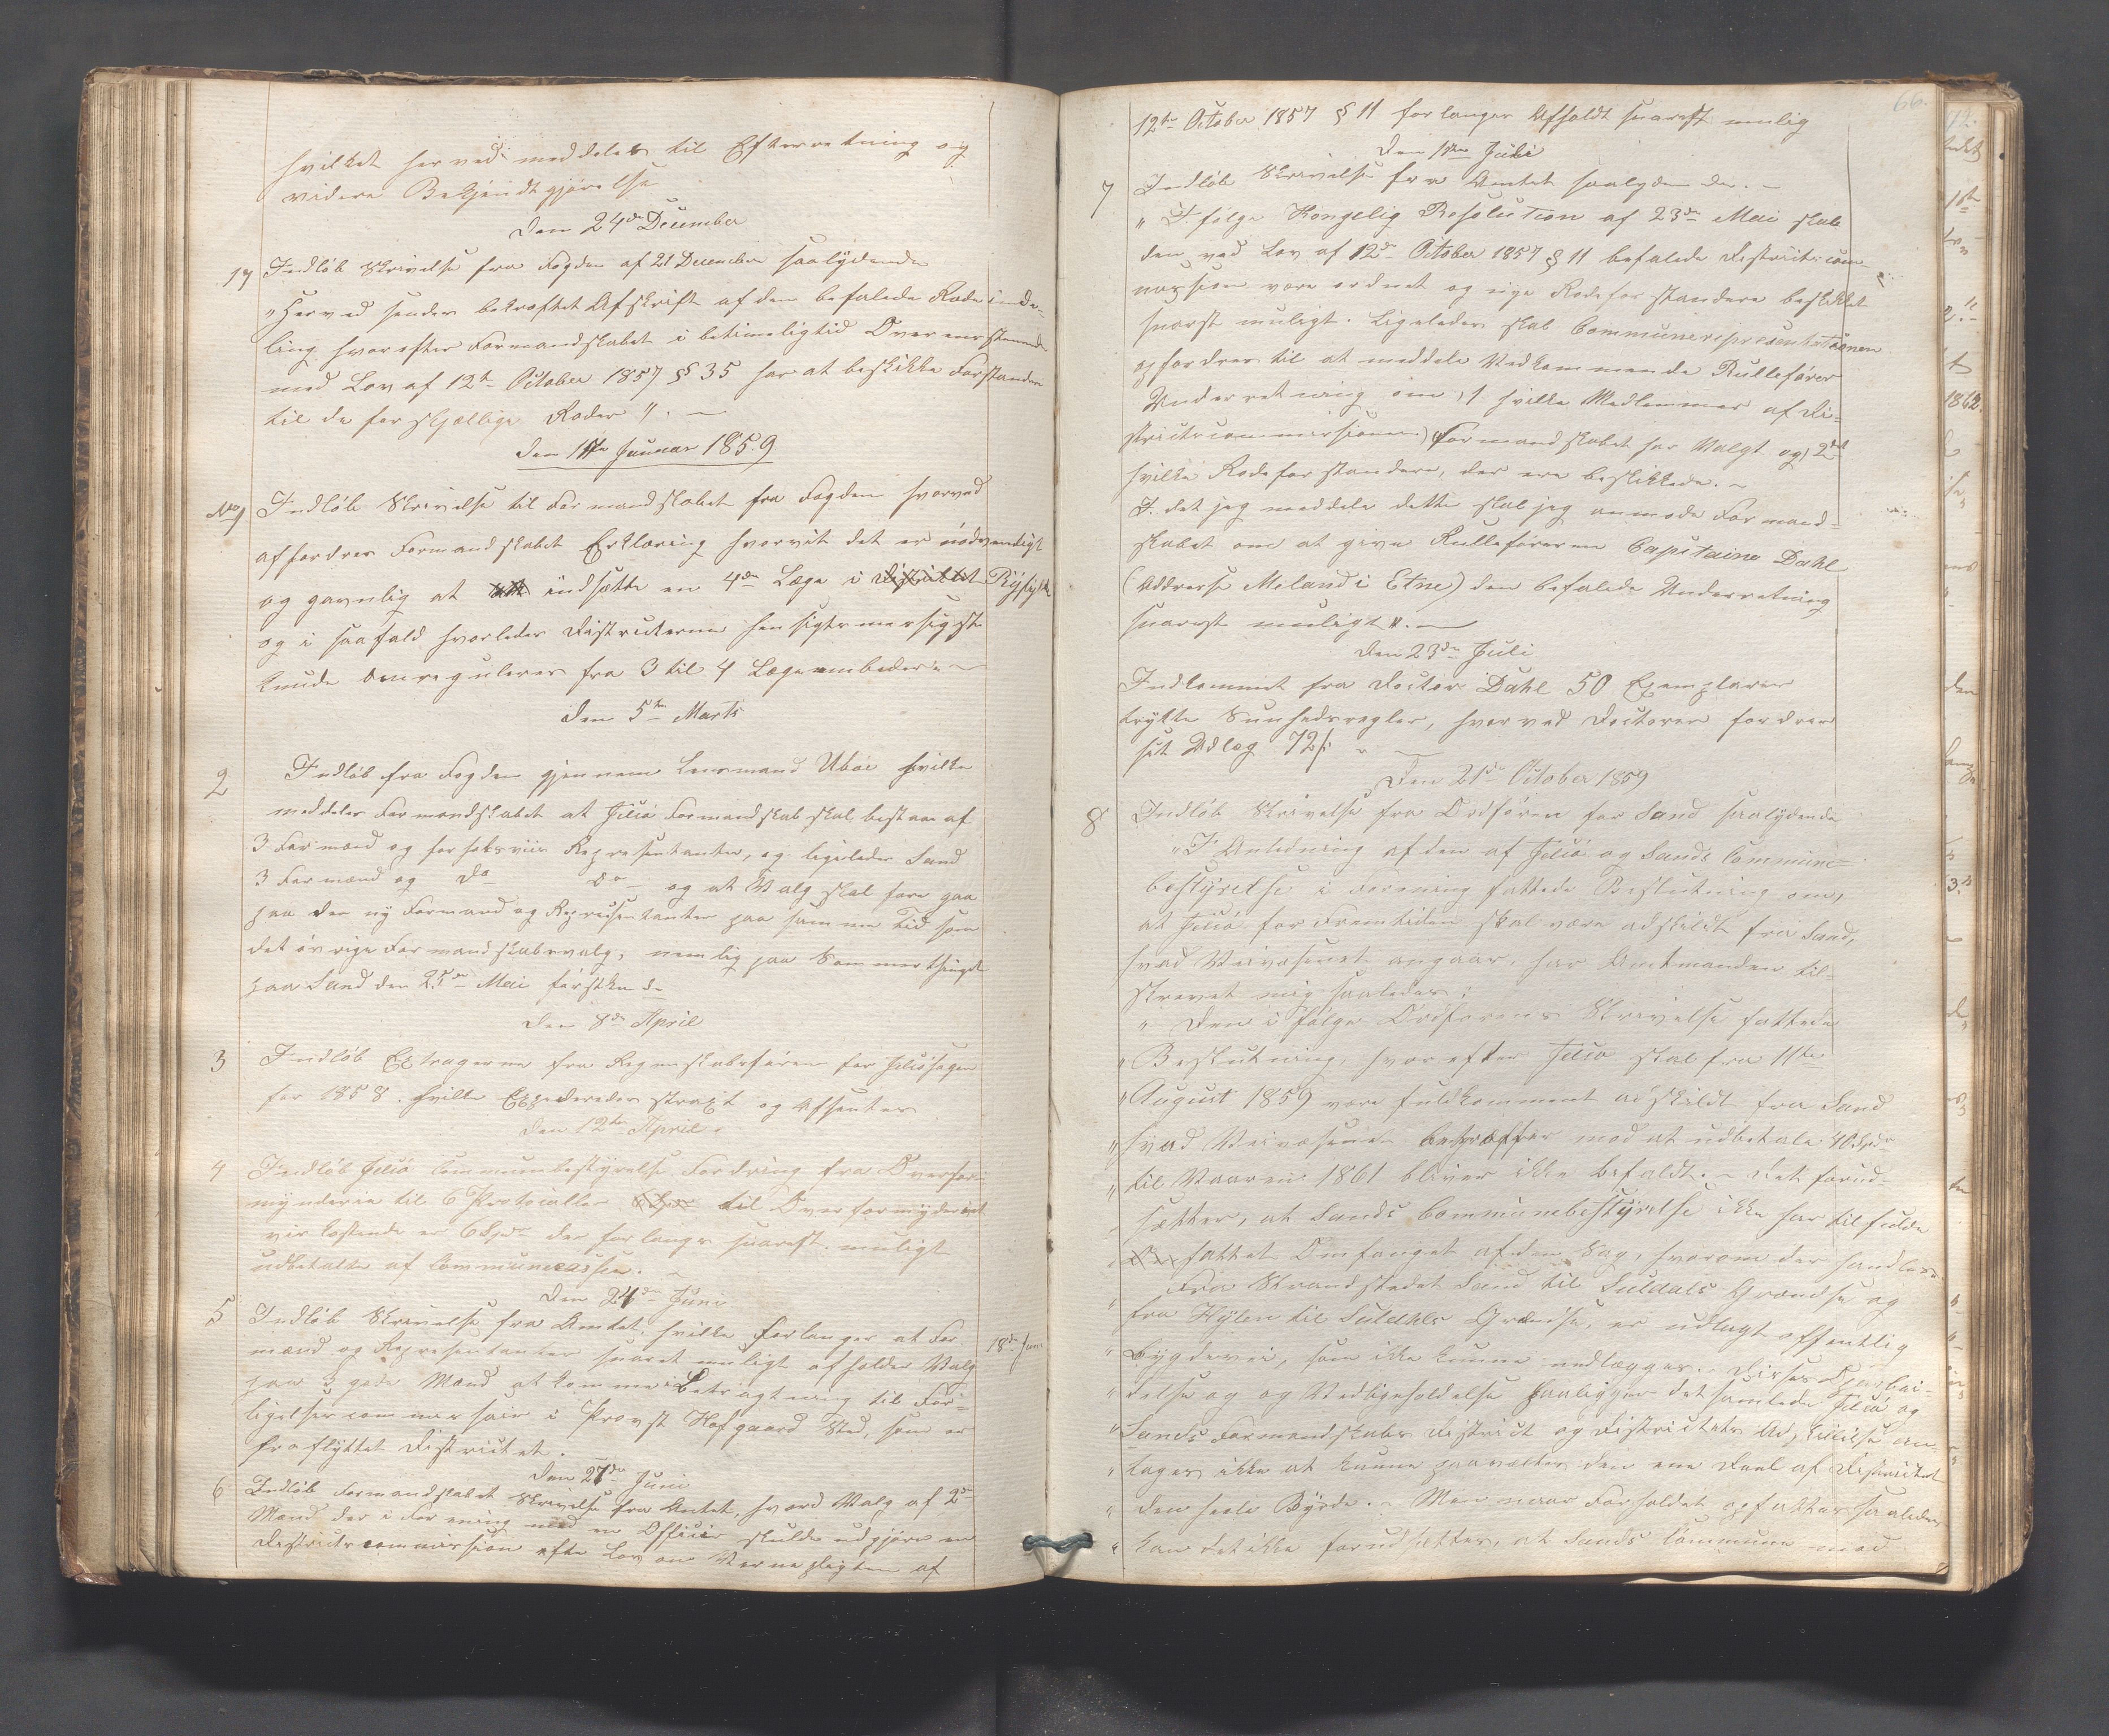 hvilket herved meddeles til Efterretning og
videre Bekjendtgjørelse
Den 24de December
17 Indløb Skrivelse fra Fogden af 21 December saalydende
"Herved sendes bekræftet Afskrift af den befalede Rodeinde-
ling hvorefter Formandskabet i betimeligtid Overensstemmende
med Lov af 12te October 1857 § 35 har at beskikke Forstandere
til de forskjællige Roder". -
Den 11te Januar 1859
No 1 Indløb Skrivelse til Formandskabet fra Fogden hvorved
affordres Formandskabet Erklæring hvorvit det er nödvendigt
og gavnlig at indsætte en 4de Læge i Districtet Ryfylke
og i saafald hvorledes Districterne hensigtsmæsigst
kunde omreguleres fra 3 til 4 Lægeembeder. -
Den 5te Marts
2 Indløb fra Fogden gjennem Lensmand Uboe hvilke
meddeler Formandskabet at Jelsø Formandskab skal bestaa af
3 Formænd og Repræsentanter, og ligeledes Sand
3 Formænd og Do Do og at Valg skal fore gaa
paa den ny Formand og Repræsentanter paa samme Tid som
det øvrige Formandskabsvalg, nemlig paa Sommerthinget
paa Sand den 25de Mai förstkende
Den 8de April
3 Indløb Extragerne fra Regnskabsføreren for Jelsøsogn
for 1858. hvilke Expederedes straxt og Afsentes
Den 12te April.
4 Indløb Jelsø Communebestyrelse Fordring fra Overfor-
mynderie til 6 Protocoller til Overformynderiet
vis kostende er 6 Spd der forlanges snarest muligt
udbetalte af Communecassen. -
Den 24de Juni
5 Indløb Skrivelse fra Amtet. hvilke forlanger at For-
mænd og Repræsentanter snarest muligt afholder Valg 18de Juni
paa 3 gode Mænd at komme i Betragtning til For-
ligelsescommissair i Provst Hofgaard Sted, som er
fraflyttet Districtet.
Den 27de Juni
6 Indløb Formandskabet Skrivelse fra Amtet, hvord Valg af 2de
Mænd der i Forening med en Officeer skulde udgjøre en
Districtscommission efter Lov om Vernepligten af
66.
12te October 1857 § 11 forlanger Afholdt snarest mulig
Den 11te Juli
7 Indløb Skrivelse fra Amtet saalydende. -
"I følge Kongelig Resolution af 23de Mai skal
den ved Lov af 12te October 1857 § 11 befalede Districtscom-
mission være ordnet og nye Rodeforstandere beskikket
snarest muligt. Ligeledes skal Communerepræsentationen
opfordres til at meddele Vedkommende Rulleförer
Underretning om, 1 hvilke Medlemmer af Di-
strictscommissionen Formandskabet har Valgt og 2det
hvilke Rodeforstandere, der ere beskikkede. -
I det jeg meddele dette skal jeg anmode Formand-
skabet om at give Rulleföreren Capitaine Dahl
(Addresse Meland i Etne) den befalede Underretning
snarest muligt". -
Den 23de Juli
Indkommet fra Doctor Dahl 50 Exemplarer
trykte Sunhedsregler, hvorved Doctoren fordrer
sit Udlæg 72 s. -
Den 21de October 1859
8 Indløb Skrivelse fra Ordføren for Sand saalydende
"I Anledning af den af Jelsø og Sands Commune-
bestyrelse i Forening fattede Beslutning om,
at Jelsø for Fremtiden skal være adskildt fra Sand,
hvad Veivæsenet angaar, har Amtmanden til-
skrevet mig saaledes:
" Den i følge Ordførens Skrivelse fattede
" Beslutning, hvorefter Jelsø skal fra 11te
" August 1859 være fuldkomment adskildt fra Sand
" hvad Veivæsenet betræffer mod at udbetale 40 Spd
" til Vaaren 1861 bliver ikke befaldt. - Det forud-
" sætter, at Sands Communebestyrelse ikke har tilfulde
" fattet Omfanget af den Sag, hvorom der handles.
" Fra Strandstedet Sand til Suldals Grændse og
" fra Hylen til Suldahls Grændse, er udlagt offentlig
" Bygdevei, som ikke kunne nedlægges. Disses Oparbei-
" delse og og Vedligeholdelse paaligger det samlede Jelsø og
" Sands Formandskabs District og Districtets Adskillelse an-
" tages ikke at kunne paavælte den ene Deel af Districtet
" den heele Byrde. - Men naar Forholdet opfattes saaledes
" kan det ikke forudsættes, at Sands Commune mod